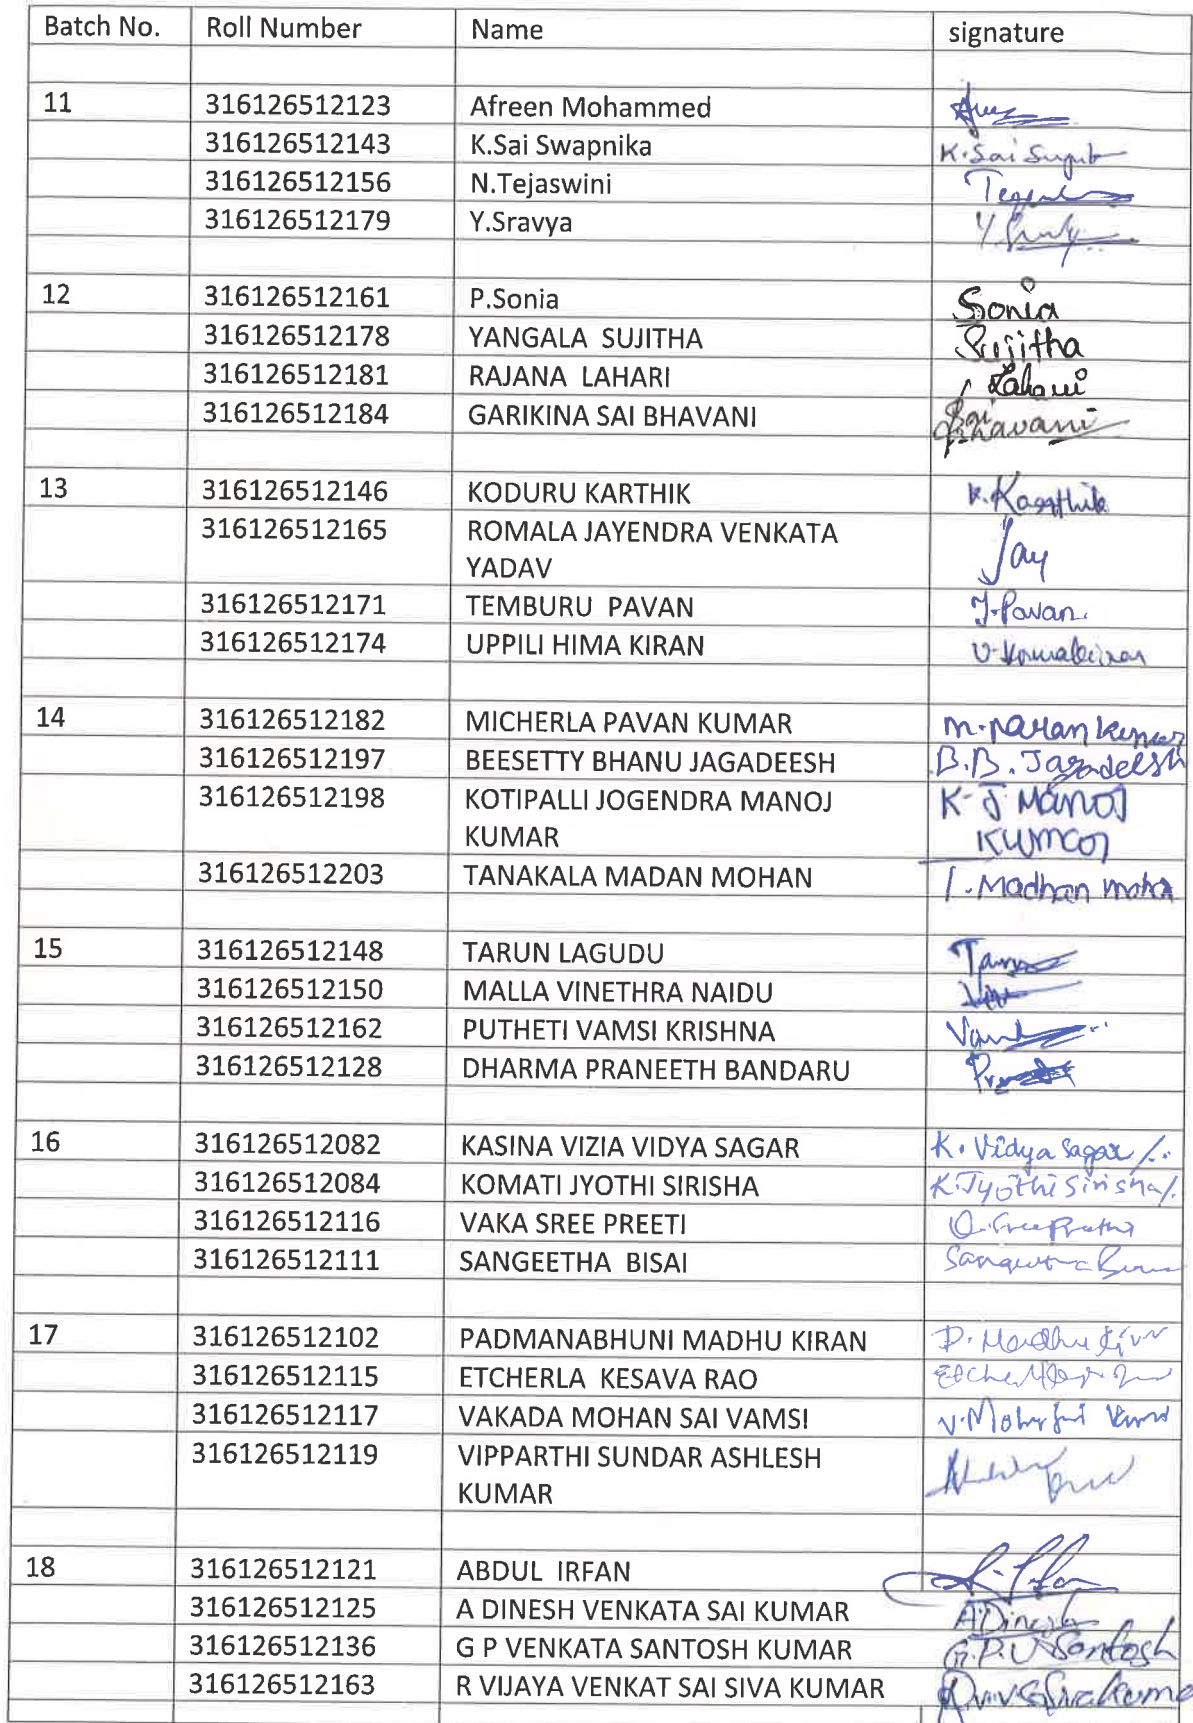 Batch No. Roll Number Name signature
11 316126512123 Afreen Mohammed
316126512143 K.Sai Swapnika K.Sai
316126512156 N.Tejaswini
316126512179 Y.Sravya Y.
12 316126512161 P.Sonia Sonia
316126512178 YANGALA SUJITHA Sujitha
316126512181 RAJANA LAHARI Lahari
316126512184 GARIKINA SAI BHAVANI Sai Bhavani
13 316126512146 KODURU KARTHIK K.Kaarthik
316126512165 ROMALA JAYENDRA VENKATA Jay
YADAV
316126512171 TEMBURU PAVAN T.Pavan.
316126512174 UPPILI HIMA KIRAN
14 316126512182 MICHERLA PAVAN KUMAR M.Pavan kumar
316126512197 BEESETTY BHANU JAGADEESH B.B.Jagadeesh
316126512198 KOTIPALLI JOGENDRA MANOJ K-J Manoj
KUMAR Kumar
316126512203 TANAKALA MADAN MOHAN T.Madhan moha
15 316126512148 TARUN LAGUDU
316126512150 MALLA VINETHRA NAIDU
316126512162 PUTHETI VAMSI KRISHNA
316126512128 DHARMA PRANEETH BANDARU
16 316126512082 KASINA VIZIA VIDYA SAGAR K. Vidya Sagar
316126512084 KOMATI JYOTHI SIRISHA K.Jyothi Sirisha
316126512116 VAKA SREE PREETI
316126512111 SANGEETHA BISAI
17 316126512102 PADMANABHUNI MADHU KIRAN P. Madhu Kiran
316126512115 ETCHERLA KESAVA RAO
316126512117 VAKADA MOHAN SAI VAMSI
316126512119 VIPPARTHI SUNDAR ASHLESH
KUMAR
18 316126512121 ABDUL IRFAN
316126512125 A DINESH VENKATA SAI KUMAR A.Dinesh
316126512136 G P VENKATA SANTOSH KUMAR G.P.V Santosh
316126512163 R VIJAYA VENKAT SAI SIVA KUMAR